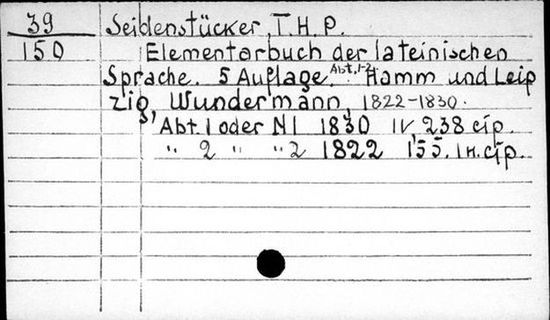 39 Seidenstücker, T. H. P.
150 Elementarbuch der lateinischen
Sprache. 5 Auflage. Abt. 1-2. Hamm und Leip
zig, Wundermann, 1822-1830.
Abt. 1 oder N1 1830 IV, 238 стр.
" 2 " " 2 1822 155. 1 н. стр.